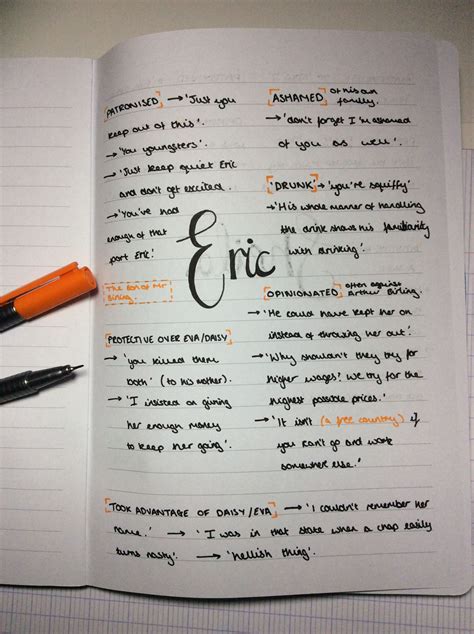 [PATRONISED] → 'Just you
keep out of this'.
→ 'You youngsters'.
→ 'Just keep quiet Eric
and don't get excited.
→ 'You've had
enough of that
port Eric'.
The son of Mr
Birling.
[PROTECTIVE OVER EVA/DAISY]
→ 'you killed them
both' (to his mother).
→ 'I insisted on giving
her enough money
to keep her going'.
Eric
[ASHAMED] of his own
family.
→ 'don't forget I'm ashamed
of you as well'.
['DRUNK'] → 'you're squiffy'
→ 'His whole manner of handling
the drink shows his familiarity
with drinking'.
[OPINIONATED] often against
Arthur Birling.
→ 'He could have kept her on
instead of throwing her out'.
→ 'Why shouldn't they try for
higher wages? We try for the
highest possible prices.'
→ 'It isn't (a free country) if
you can't go and work
somewhere else.'
[TOOK ADVANTAGE OF DAISY/EVA] → 'I couldn't remember her
name.' → 'I was in that state when a chap easily
turns nasty'. → 'hellish thing'.